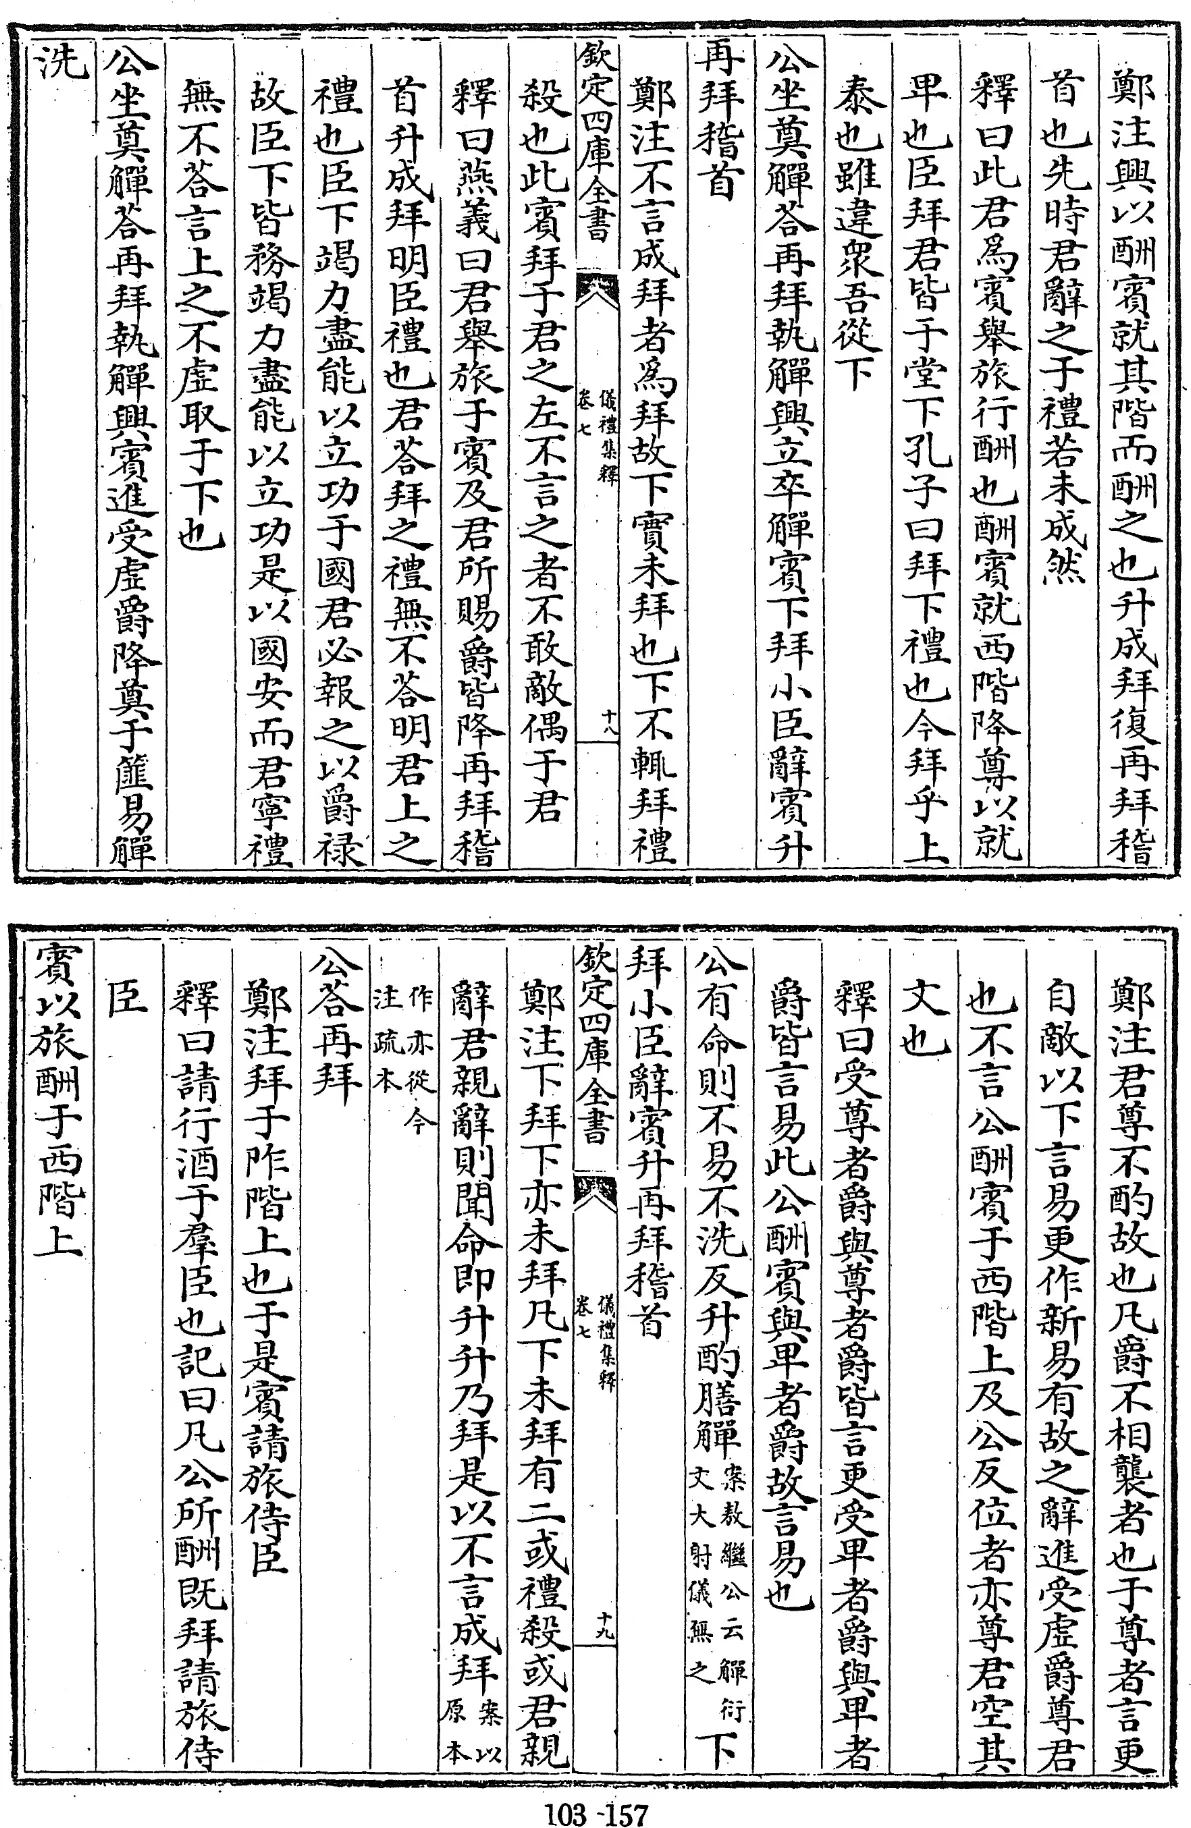 鄭注興以酬賓就其階而酬之也升成拜復再拜稽
首也先時君辭之于禮若未成然
釋曰此君為賓舉旅行酬也酬賓就西階降尊以就
卑也臣拜君皆于堂下孔子曰拜下禮也今拜乎上
泰也雖違衆吾從下
公坐奠觶荅再拜執觶興立卒觶賓下拜小臣辭賓升
再拜稽首
鄭注不言成拜者為拜故下實未拜也下不輒拜禮
欽定四庫全書
儀禮集釋
卷七
十八
殺也此賓拜于君之左不言之者不敢敵偶于君
釋曰燕義曰君舉旅于賓及君所賜爵皆降再拜稽
首升成拜明臣禮也君荅拜之禮無不荅明君上之
禮也臣下竭力盡能以立功于國君必報之以爵祿
故臣下皆務竭力盡能以立功是以國安而君寧禮
無不荅言上之不虛取于下也
公坐奠觶荅再拜執觶興賓進受虛爵降奠于篚易觶
洗
鄭注君尊不酌故也凡爵不相襲者也于尊者言更
自敵以下言易更作新易有故之辭進受虛爵尊君
也不言公酬賓于西階上及公反位者亦尊君空其
文也
釋曰受尊者爵與尊者爵皆言更受卑者爵與卑者
爵皆言易此公酬賓與卑者爵故言易也
公有命則不易不洗反升酌膳觶案敖繼公云觶衍文大射儀無之下
拜小臣辭賓升再拜稽首
欽定四庫全書
儀禮集釋
卷七
十九
鄭注下拜下亦未拜凡下未拜有二或禮殺或君親
辭君親辭則聞命即升升乃拜是以不言成拜案以原本
作亦從今注疏本
公荅再拜
鄭注拜于阼階上也于是賓請旅侍臣
釋曰請行酒于羣臣也記曰凡公所酬既拜請旅侍
臣
賓以旅酬于西階上
103-157